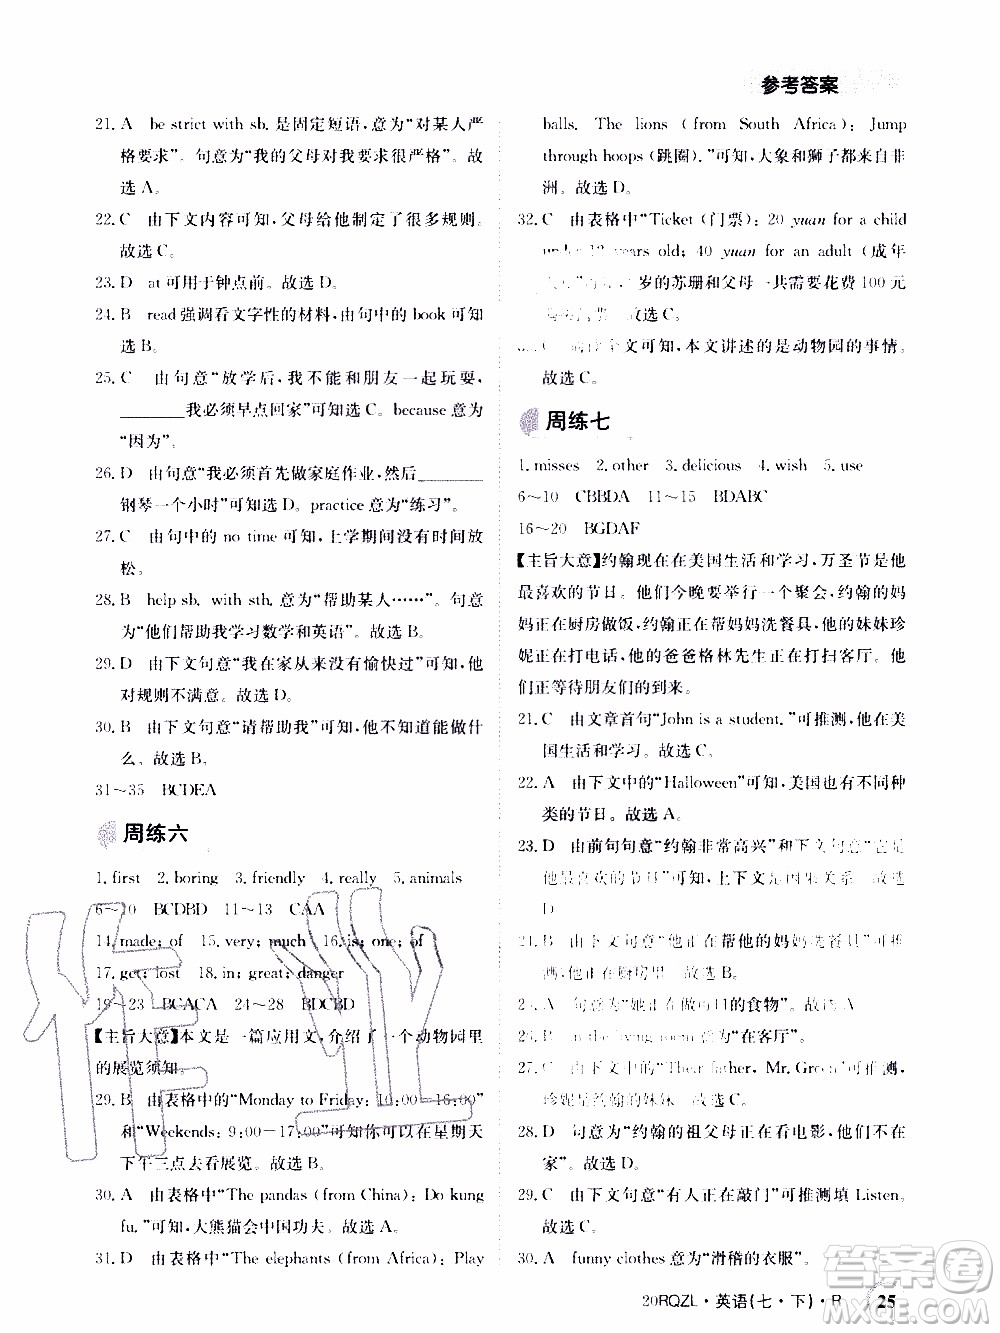 参考答案
21. A be strict with sb. 是固定短语,意为“对某人严
格要求”。句意为“我的父母对我要求很严格”。故
选 A。
22. C 由下文内容可知,父母给他制定了很多规则。
故选 C。
23. D at 可用于钟点前。故选 D。
24. B read 强调看文字性的材料,由句中的 book 可知
选 B。
25. C 由句意“放学后,我不能和朋友一起玩耍,
________我必须早点回家”可知选 C。because 意为
“因为”。
26. D 由句意“我必须首先做家庭作业,然后________
钢琴一个小时”可知选 D。practice 意为“练习”。
27. C 由句中的 no time 可知,上学期间没有时间放
松。
28. B help sb. with sth. 意为“帮助某人……”。句意
为“他们帮助我学习数学和英语”。故选 B。
29. D 由下文句意“我在家从来没有愉快过”可知,他
对规则不满意。故选 D。
30. B 由下文句意“请帮助我”可知,他不知道能做什
么。故选 B。
31～35 BCDEA
周练六
1. first 2. boring 3. friendly 4. really 5. animals
6～10 BCDBD 11～13 CAA
14. made; of 15. very; much 16. is; one; of
17. get; lost 18. in; great; danger
19～23 BCACA 24～28 BDCBD
【主旨大意】本文是一篇应用文,介绍了一个动物园里
的展览须知。
29. B 由表格中的“Monday to Friday: 10:00-16:00
和 Weekends: 9:00-17:00”可知你可以在星期天
下午三点去看展览。故选 B。
30. A 由表格中“The pandas (from China): Do kung
fu.”可知,大熊猫会中国功夫。故选 A。
31. D 由表格中“The elephants (from Africa): Play
balls. The lions (from South Africa): Jump
through hoops (跳圈).”可知,大象和狮子都来自非
洲。故选 D。
32. C 由表格中“Ticket (门票): 20 yuan for a child
under 12 years old; 40 yuan for an adult (成年
岁的苏珊和父母一共需要花费 100 元
故选 C。
C 由下文可知,本文讲述的是动物园的事情。
故选 C。
周练七
1. misses 2. other 3. delicious 4. wish 5. use
6～10 CBBDA 11～15 BDABC
16～20 BGDAF
【主旨大意】约翰现在在美国生活和学习,万圣节是他
最喜欢的节日。他们今晚要举行一个聚会,约翰的妈
妈正在厨房做饭,约翰正在帮妈妈洗餐具,他的妹妹珍
妮正在打电话,他的爸爸格林先生正在打扫客厅。他
们正等待朋友们的到来。
21. C 由文章首句“John is a student.”可推测,他在美
国生活和学习。故选 C。
22. A 由下文中的“Halloween”可知,美国也有不同种
类的节日。故选 A。
23. D 由前句句意“约翰非常高兴”和下文中“这是
他最喜欢的节日”可知,上下文是因果关系。故选
D
B 由下文句意“他正在帮他的妈妈洗餐具”可
知,她正在厨房里。故选 B。
A 句意为“她正在做可口的食物”。故选 A
in the living room 意为“在客厅”。
27. C 由下句“Their father, Mr. Green”可推测,
珍妮是约翰的妹妹。故选 C。
28. D 句意为“约翰的祖父母正在看电影,他们不在
家”。故选 D。
29. C 由下文句意“有人正在敲门”可推测填 Listen。
故选 C。
30. A funny clothes 意为“滑稽的衣服”。
20RQZL·英语(七·下)·R 25
作业
答案圈
MXQE.COM